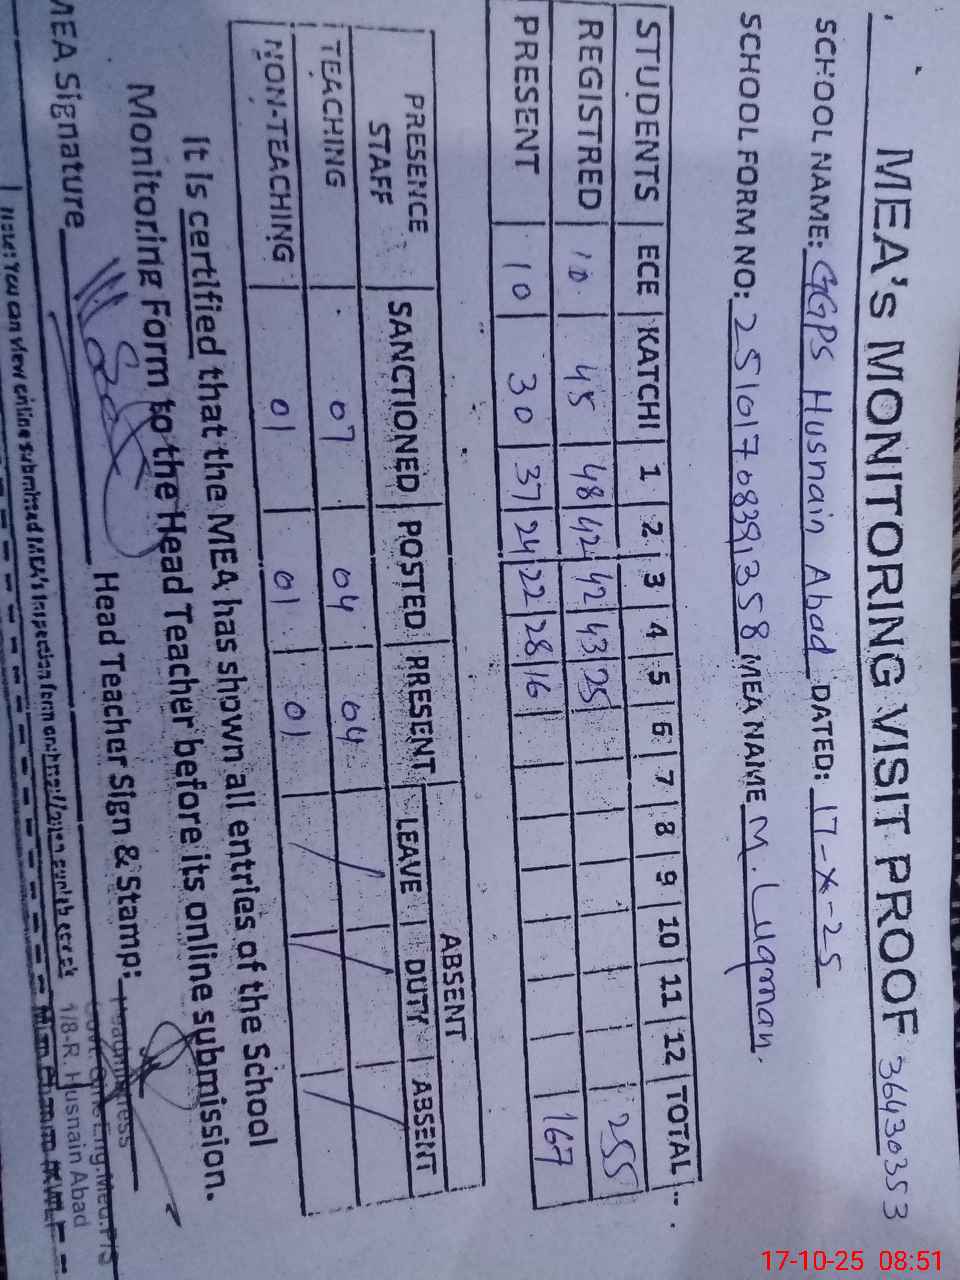 MEA's MONITORING VISIT PROOF 36430353
SCHOOL NAME: GGPS Husnain Abad DATED: 17-X-25
SCHOOL FORM NO: 25101708391358 MEA NAME M. Luqman.
STUDENTS ECE KATCHI 1 2 3 4 5 6 7 8 9 10 11 12 TOTAL
REGISTRED 10 45 48 42 42 43 25 255
PRESENT 10 30 37 24 22 28 16 167
PRESENCE STAFF SANCTIONED POSTED PRESENT ABSENT
LEAVE DUTY ABSENT
TEACHING 07 04 04
NON-TEACHING 01 01 01
It is certified that the MEA has shown all entries of the School
Monitoring Form to the Head Teacher before its online submission.
MEA Signature Head Teacher Sign & Stamp:
Headmistress
1/8-R. Husnain Abad
Note: You can view online submitted MEA's Inspection form on
17-10-25 08:51